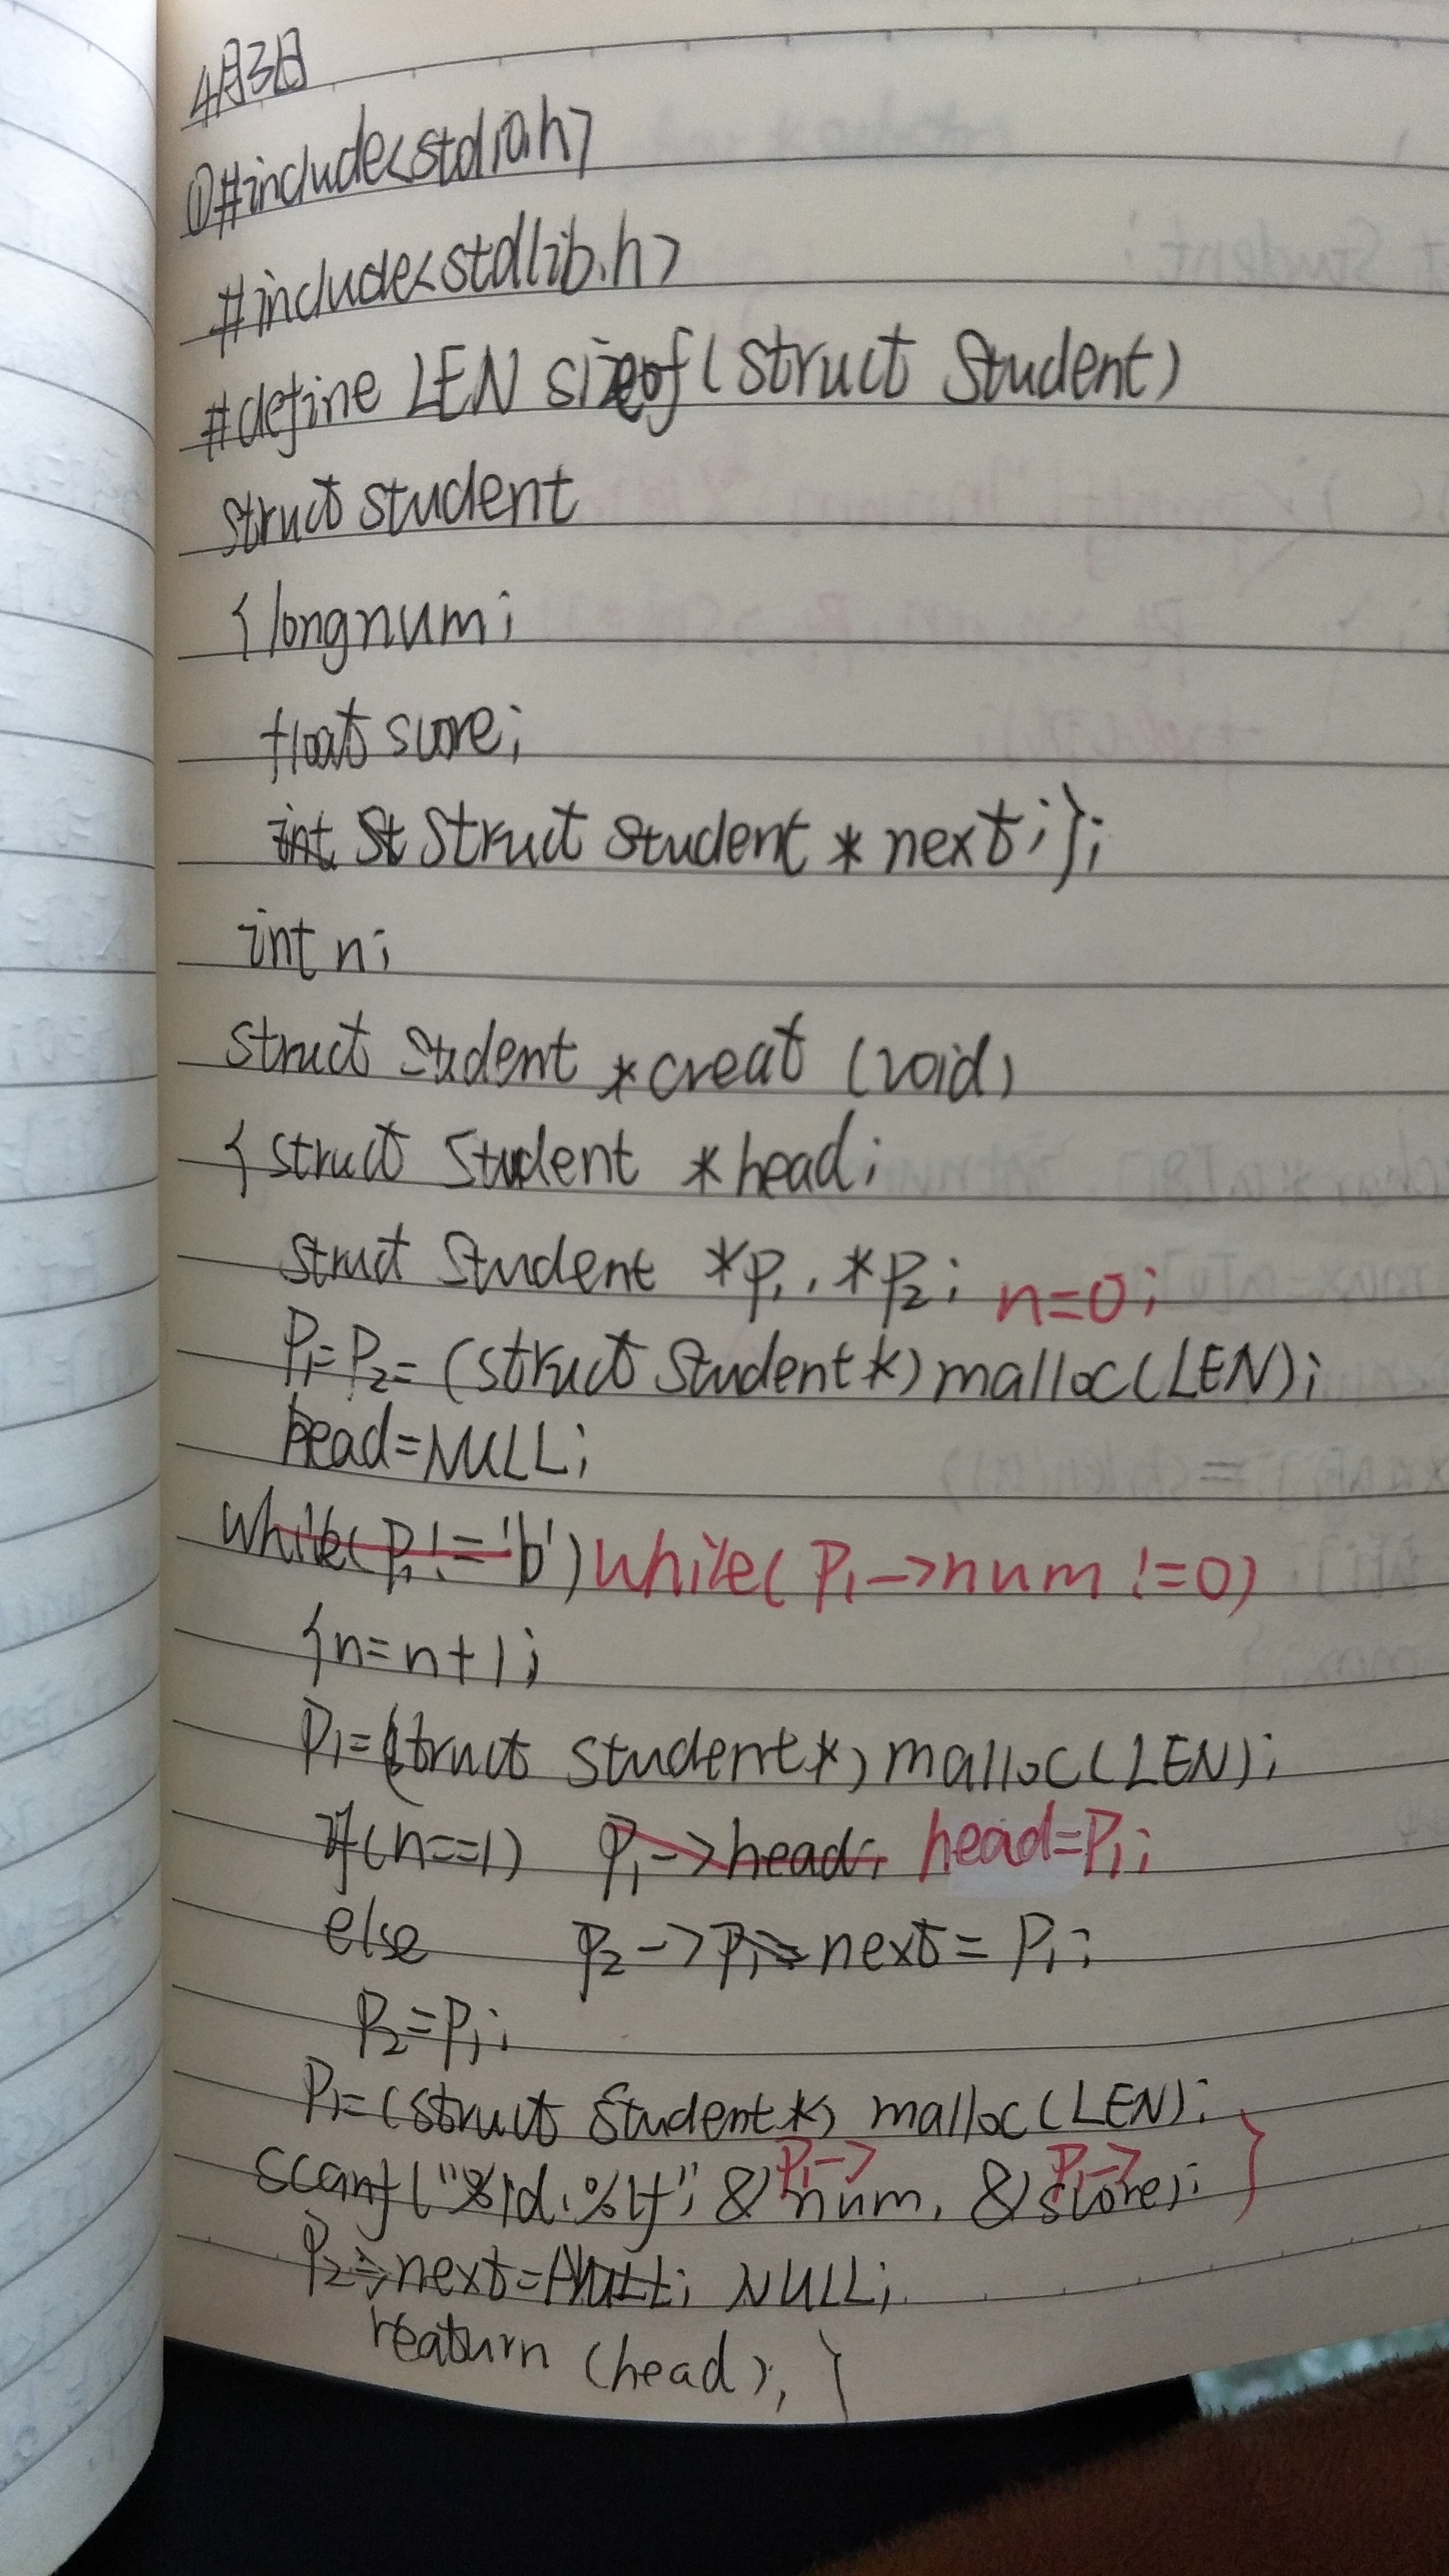 4月3日
①#include<stdio.h>
#include<stdlib.h>
#define LEN sizeof(struct Student)
struct student
{long num;
float score;
int St struct student * next;};
int n;
struct student *creat (void)
{struct student *head;
struct student *p1,*p2; n=0;
P1=P2=(struct student*)malloc(LEN);
head=NULL;
while(P1!='b')while(P1->num !=0)
{n=n+1;
P1=(truct student*)malloc(LEN);
if(n==1) P1->head; head=P1;
else P2->P1->next=P1;
P2=P1;
P1=(struct student*) malloc(LEN);
P1-> P1->
scanf("%ld,%lf", &num, &score); }
P2->next=NULL; NULL;
reaturn (head); }